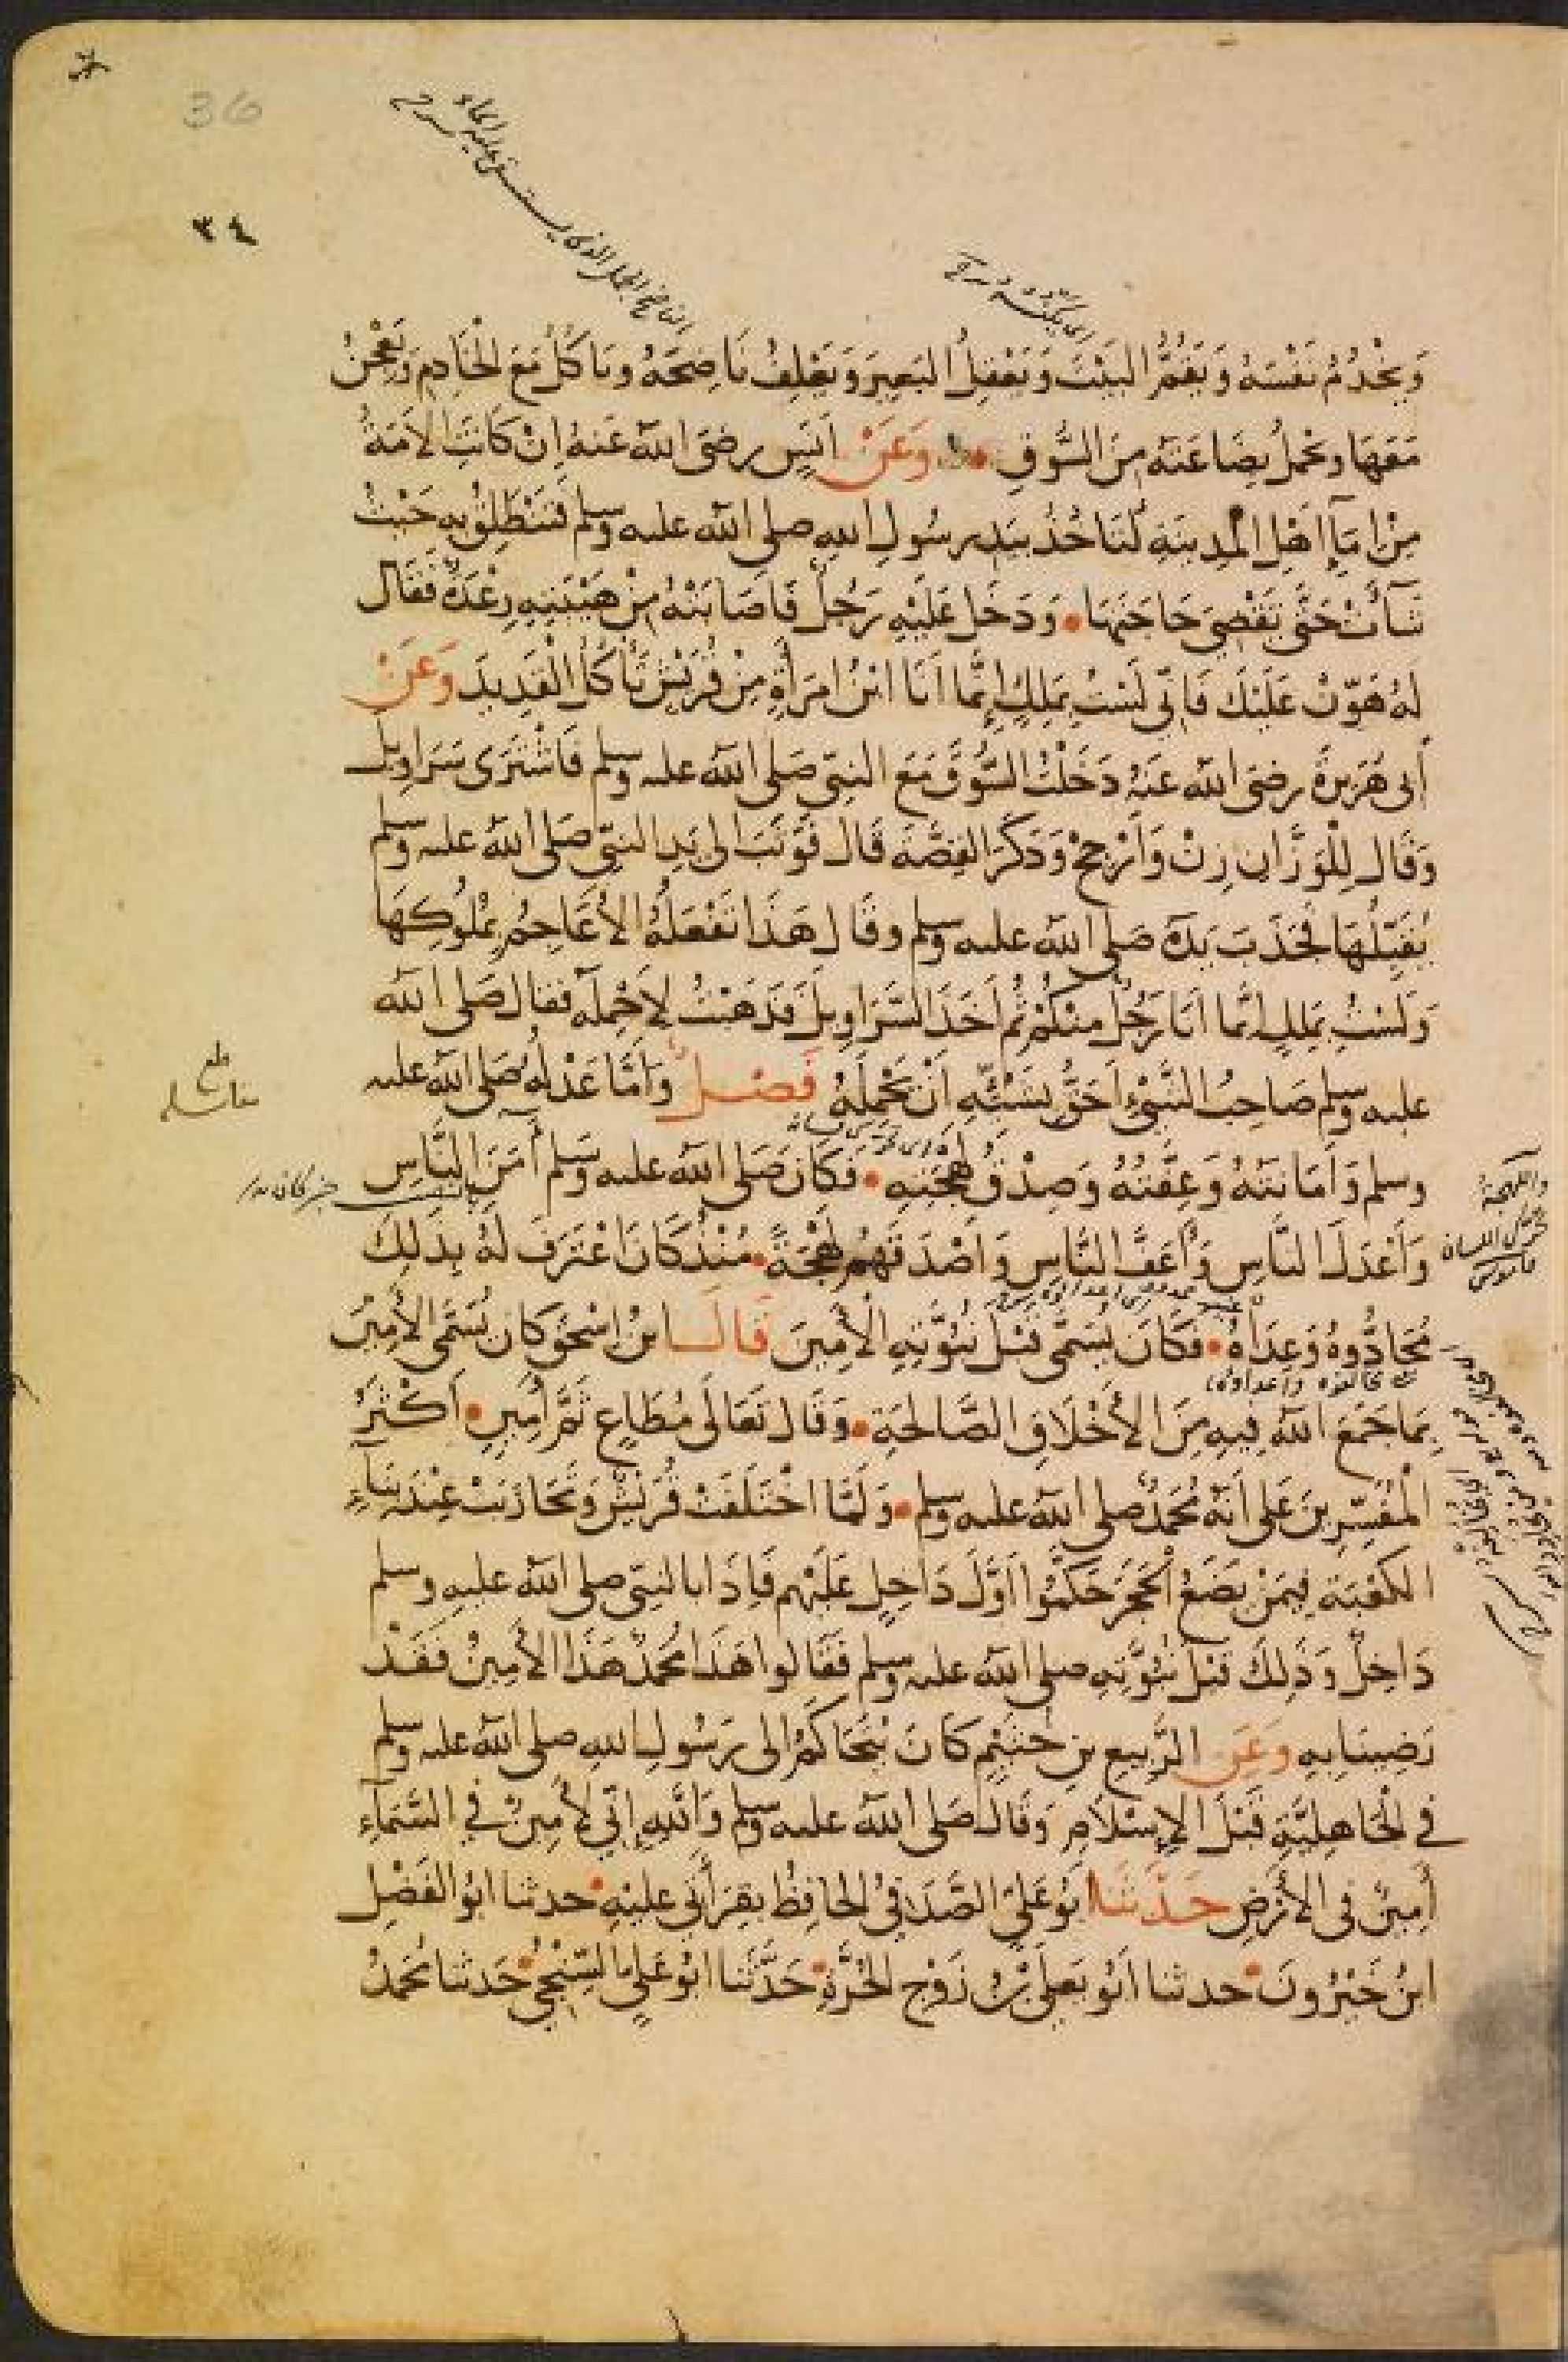 36
٣٤
الناضح الجمل الذي يستقى عليه الماء
اى يكنسه
وَيَخْدُمُ نَفْسَهُ وَيَقُمُّ البَيْتَ وَيَعْقِلُ البَعِيرَ وَيَعْلِفُ نَاضِحَهُ وياكُلُ مَعَ الْخَادِمِ وَيَعْجِنُ
مَعَهَا ويَحْمِلُ بِضَاعَتَهُ مِنَ السُّوقِ وَعَنْ اَنَسٍ رضىَ اللّه عَنهُ اِنْ كَانَتِ الاَمَةُ
مِنْ اِمَآءِ اَهْلِ الْمدِينَةِ لَتَاخُذُ بِيَدِ رسُولِ اللهِ صلى اللّه عليه وسلم فَتَنْطَلِقُ بِهِ حَيْثُ
شَآءَتْ حَتَّى تَقْضِيَ حَاجَتَهَا وَدَخَلَ عَلَيْهِ رَجُلٌ فَاَصَابَتْهُ مِنْ هَيْبَتِهِ رِعْدَةٌ فَقَال
لَهُ هَوِّنْ عَلَيْكَ فَاِنّى لَسْتُ بِمَلِكٍ اِنَّمَا اَنَا ابْنُ امرَأَةٍ مِنْ قُرَيْشٍ تَأْكُلُ الْقَدِيدَ وَعَنْ
أبى هُرَيرةَ رضىَ اللّه عَنهُ دَخَلْتُ السُّوقَ مَعَ النبىّ صَلى اللّه عليه وسلم فَاشْتَرَى سَرَاوِيلَ
وَقَال لِلْوَزَّانِ زِنْ وَاَرْجِحْ وَذكَرَ القِصَّةَ قَالَ فَوَثَبَ الى يَدِ النبىّ صَلى اللّه عليه وسلم
يُقَبِّلُهَا فَجَذَبَ يَدَهُ صَلى اللّه عليه وسلم وقَال هَذَا تَفْعَلُهُ الاَعَاجِمُ بمُلُوكِهَا
وَلَسْتُ بمَلِكٍ اِنَّمَا اَنَا رَجُلٌ مِنْكُمْ ثُمَّ اَخَذَ السَّرَاوِيلَ فَذَهَبْتُ لِاَحْمِلَهُ فقال صَلى اللّه
عليه وسلم صَاحِبُ الشَّىْءِ اَحَقُّ بِشَيْئِهِ اَنْ يَحْمِلَهُ فَصْلٌ وَاَمَّا عَدْلُهُ صَلى اللّه عليه
وسلم وَاَمَانَتُهُ وَعِفَّتُهُ وَصِدْقُ لَهْجَتِهِ فَكَانَ صَلى اللّه عليه وسلم آمَنَ النَّاسِ
وَاَعْدَلَ النَّاسِ وَاَعَفَّ النَّاسِ وَاَصْدَقَهُمْ لَهْجَةً مُنْذُ كَانَ اعْتَرَفَ لَهُ بِذَلِكَ
مُحَادُّوهُ وَعِدَاهُ فَكَانَ يُسَمَّى قَبْلَ نُبُوَّتِهِ الْأَمِينَ قَالَ ابنُ اِسْحَقَ كَانَ يُسَمَّى الأَمِينَ
بِمَا جَمَعَ اللّه فِيهِ مِنَ الأَخْلاَقِ الصَّالِحَةِ وَقَال تَعَالَى مُطَاعٍ ثَمَّ أَمِينٍ اَكْثَرُ
الْمُفَسِّرِينَ عَلى اَنَّهُ مُحَمَّدٌ صلى اللّه عليه وسلم وَلَمَّا اخْتَلَفَتْ قُرَيْشٌ وَتَحَازَبَتْ عِنْدَ بِنَآءِ
الكَعْبَةِ فِيمَنْ يَضَعُ الحَجَرَ حَكَّمُوا اَوَّلَ دَاخِلٍ عَلَيْهِم فَاِذَا بالنبىّ صلى اللّه عليه وسلم
دَاخِلٌ وَذَلِكَ قَبْلَ نُبُوَّتِهِ صلى اللّه عليه وسلم فَقَالوا هَذَا مُحَمَّدٌ هَذَا الأَمِينُ قَقَدْ
رَضِينَا بِهِ وَعَن الرَّبِيعِ بنِ خُثَيْمٍ كَانَ يُتَحَاكَمُ الى رَسُولِ اللهِ صلى اللّه عليه وسلم
فى الْجَاهِلِيَّةِ قَبْلَ الاِسْلاَمِ وَقَالَ صَلى اللّه عليه وسلم وَاللّهِ اِنّى لَأَمِينٌ فى السَّمَآءِ
أَمِينٌ فى الأَرْضِ حَدَّثَنَا اَبُو عَلِىٍّ الصَّدَفِىُّ الحَافِظُ بِقِرَاَتى عليْهِ حدثنا ابُو الفَضْلِ
ابنُ خَيْرُونَ حدثنا اَبُو يَعلَى بْنُ زَوْجِ الحُرَّةِ حَدَّثَنا ابُو عَلِىٍّ السِّنْجِىُّ حَدثنا مُحَمدُ
واللهجة
محركة اللسان
قاموس
اى مخالفوه واعداؤه
بالنصب خبر كان
بلغ
مقابلة